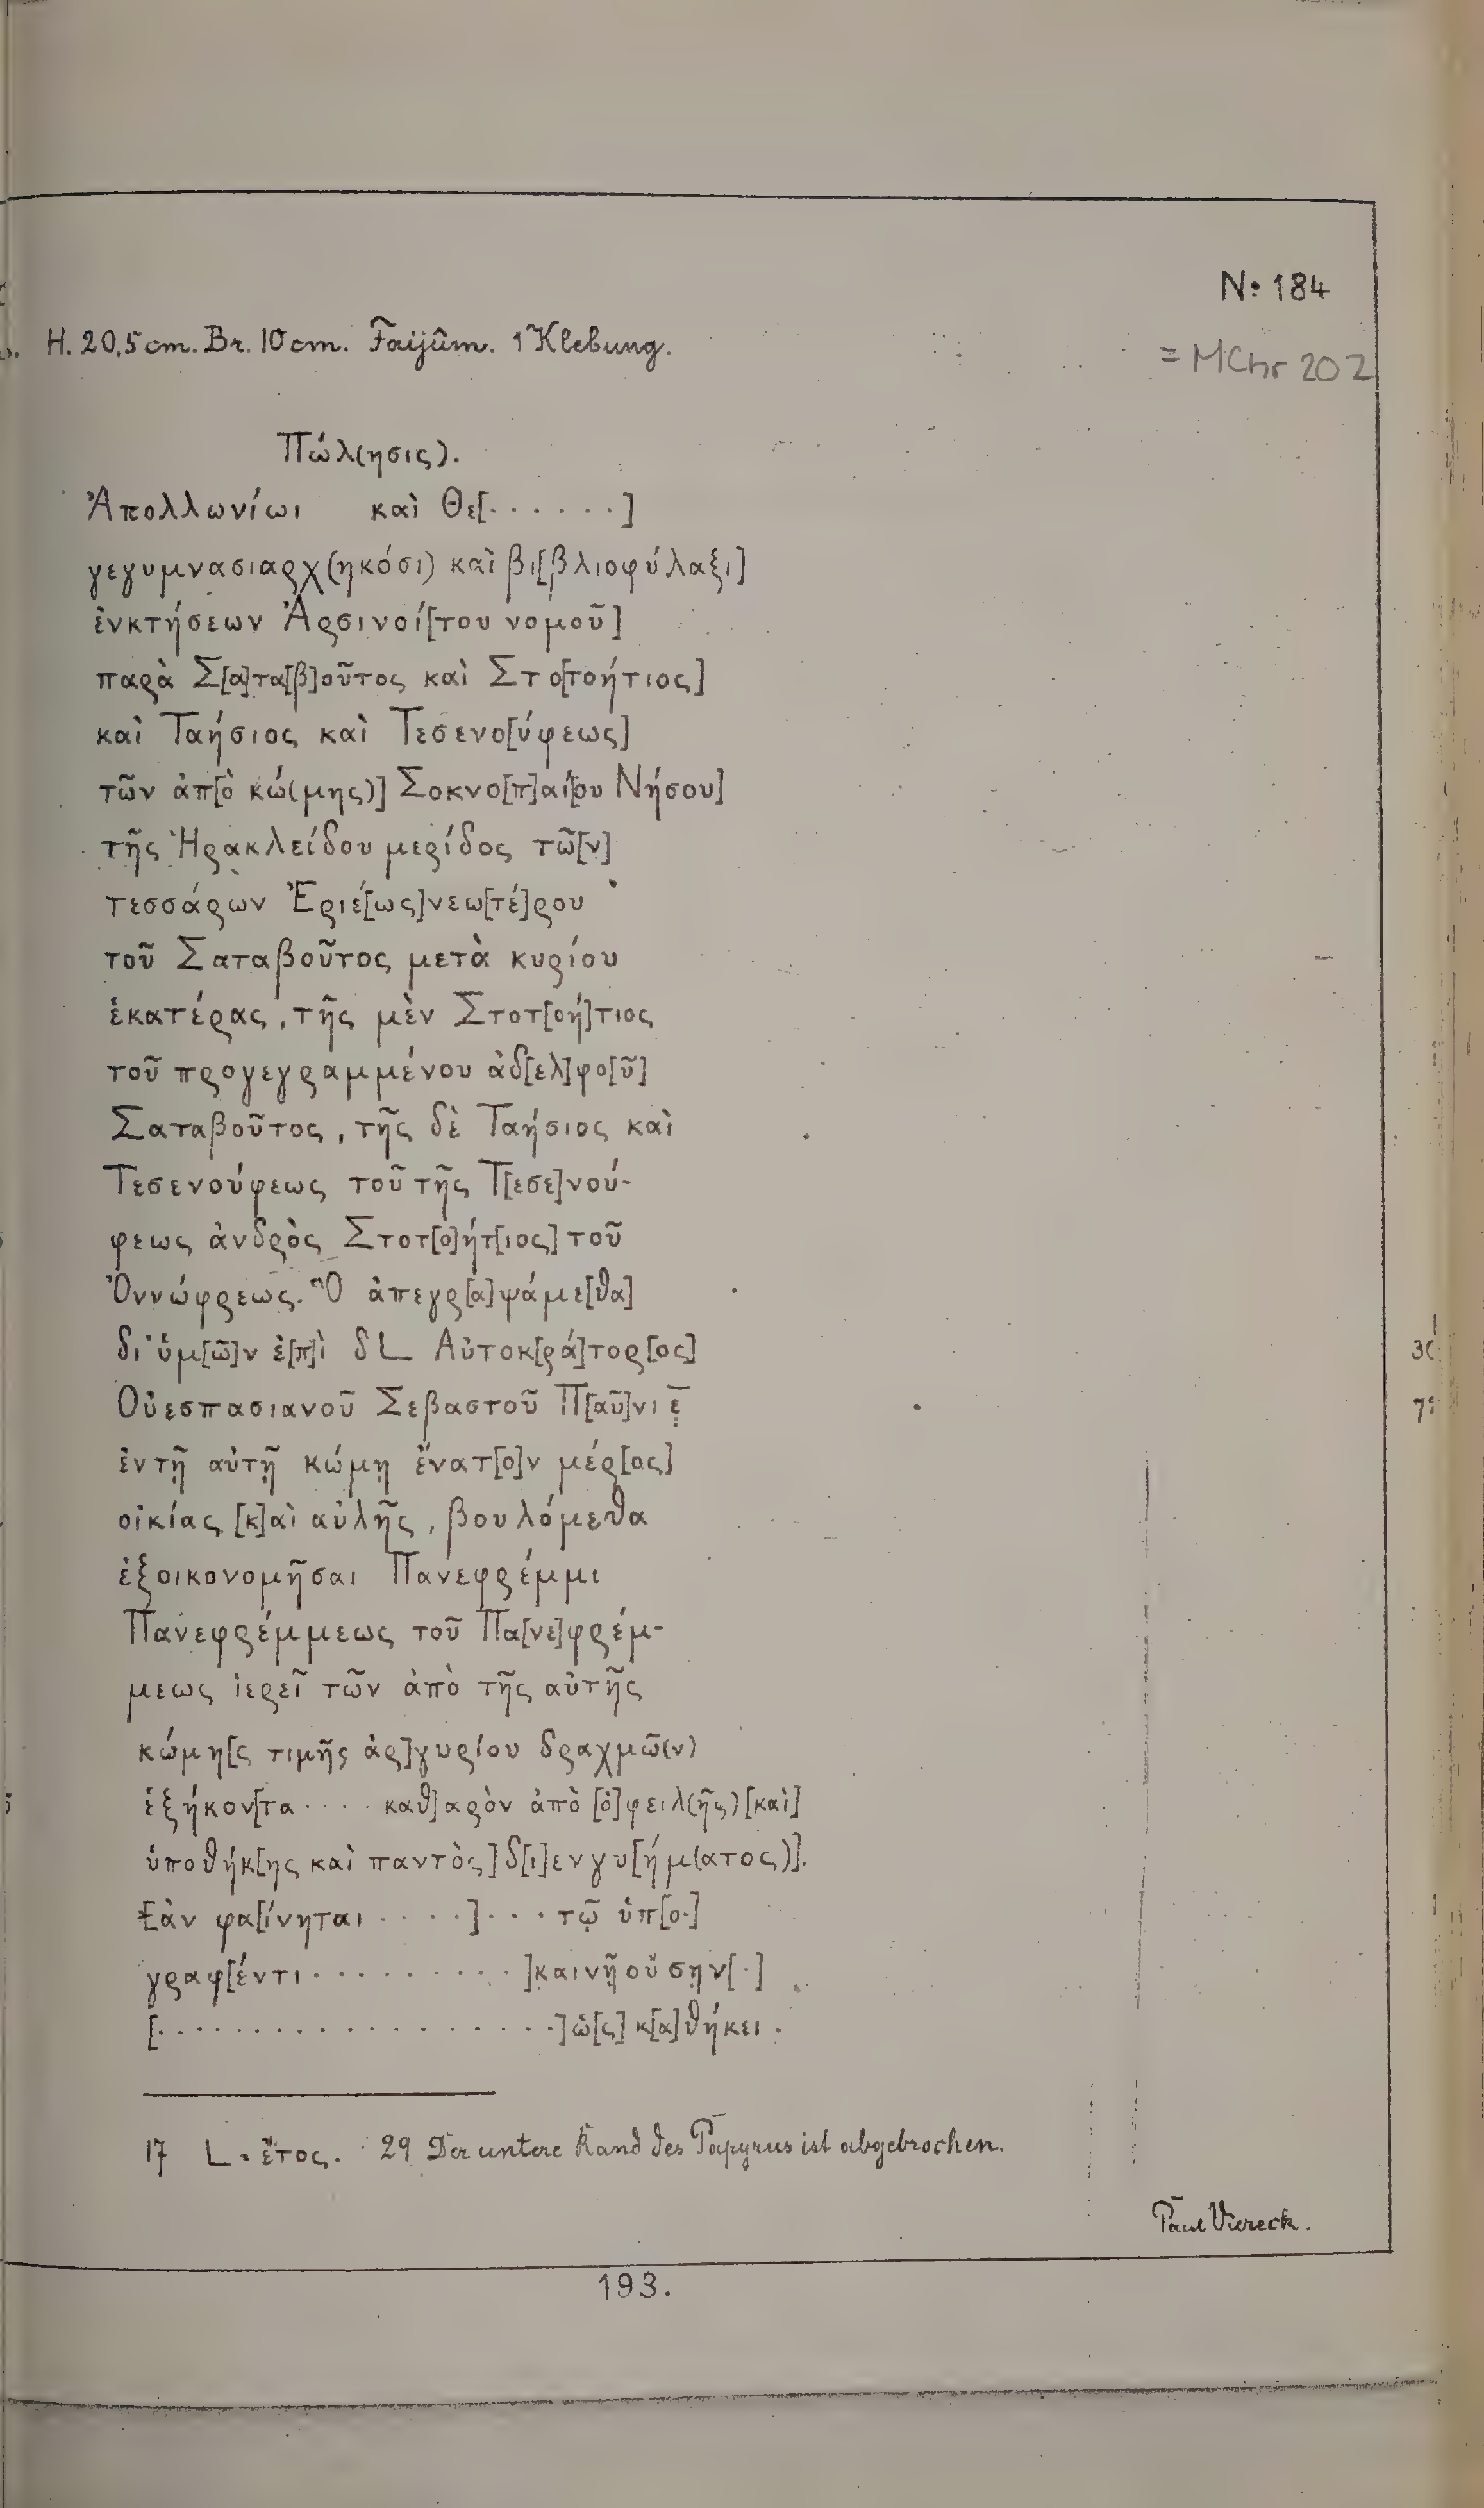 N: 184
H. 20,5 cm. Br. 10 cm. Faijûm. 1 Klebung.
= MChr 202
Πώλ(ησις).
Ἀπολλωνίωι καὶ Θε[······]
γεγυμνασιαρχ(ηκόσι) καὶ βι[βλιοφύλαξι]
ἐνκτήσεων Ἀρσινοί[του νομοῦ]
παρὰ Σ[α]τα[β]οῦτος καὶ Στο[τοήτιος]
καὶ Ταήσιος καὶ Τεσενο[ύφεως]
τῶν ἀπ[ὸ κώ(μης)] Σοκνο[π]αί[ου Νήσου]
τῆς Ἡρακλείδου μερίδος τῶ[ν]
τεσσάρων Ἐριέ[ως] νεω[τέ]ρου
τοῦ Σαταβοῦτος μετὰ κυρίου
ἑκατέρας, τῆς μὲν Στοτ[οή]τιος
τοῦ προγεγραμμένου ἀδ[ελ]φο[ῦ]
Σαταβοῦτος, τῆς δὲ Ταήσιος καὶ
Τεσενούφεως τοῦ τῆς Τ[εσε]νού-
φεως ἀνδρὸς Στοτ[ο]ήτ[ιος] τοῦ
Ὀννώφρεως. Ὃ ἀπεγρ[α]ψάμε[θα]
δι' ὑμ[ῶ]ν ἐ[π]ὶ δ L Αὐτοκ[ρά]τορ[ος]
Οὐεσπασιανοῦ Σεβαστοῦ Π[αῦ]νι ε̣̅
ἐν τῇ αὐτῇ κώμῃ ἔνατ[ο]ν μέρ[ος]
οἰκίας [κ]αὶ αὐλῆς, βουλόμεθα
ἐξοικονομῆσαι Πανεφρέμμι
Πανεφρέμμεως τοῦ Πα[νε]φρέμ-
μεως ἱερεῖ τῶν ἀπὸ τῆς αὐτῆς
κώμη[ς τιμῆς ἀρ]γυρίου δραχμῶ(ν)
ἑξήκον[τα ···· καθ]αρὸν ἀπὸ [ὀ]φειλ(ῆς) [καὶ]
ὑποθήκ[ης καὶ παντὸς] δ[ι]ενγυ[ήμ(ατος)].
Ἐὰν φα[ίνηται ····]··· τῷ ὑπ[ο-]
γραφ[έντι ··········]καινῆ οὔσην[·]
[··················]ὡ[ς] κ[α]θήκει.
17 L = ἔτος. 29 Der untere Rand des Papyrus ist abgebrochen.
Paul Viereck.
193.